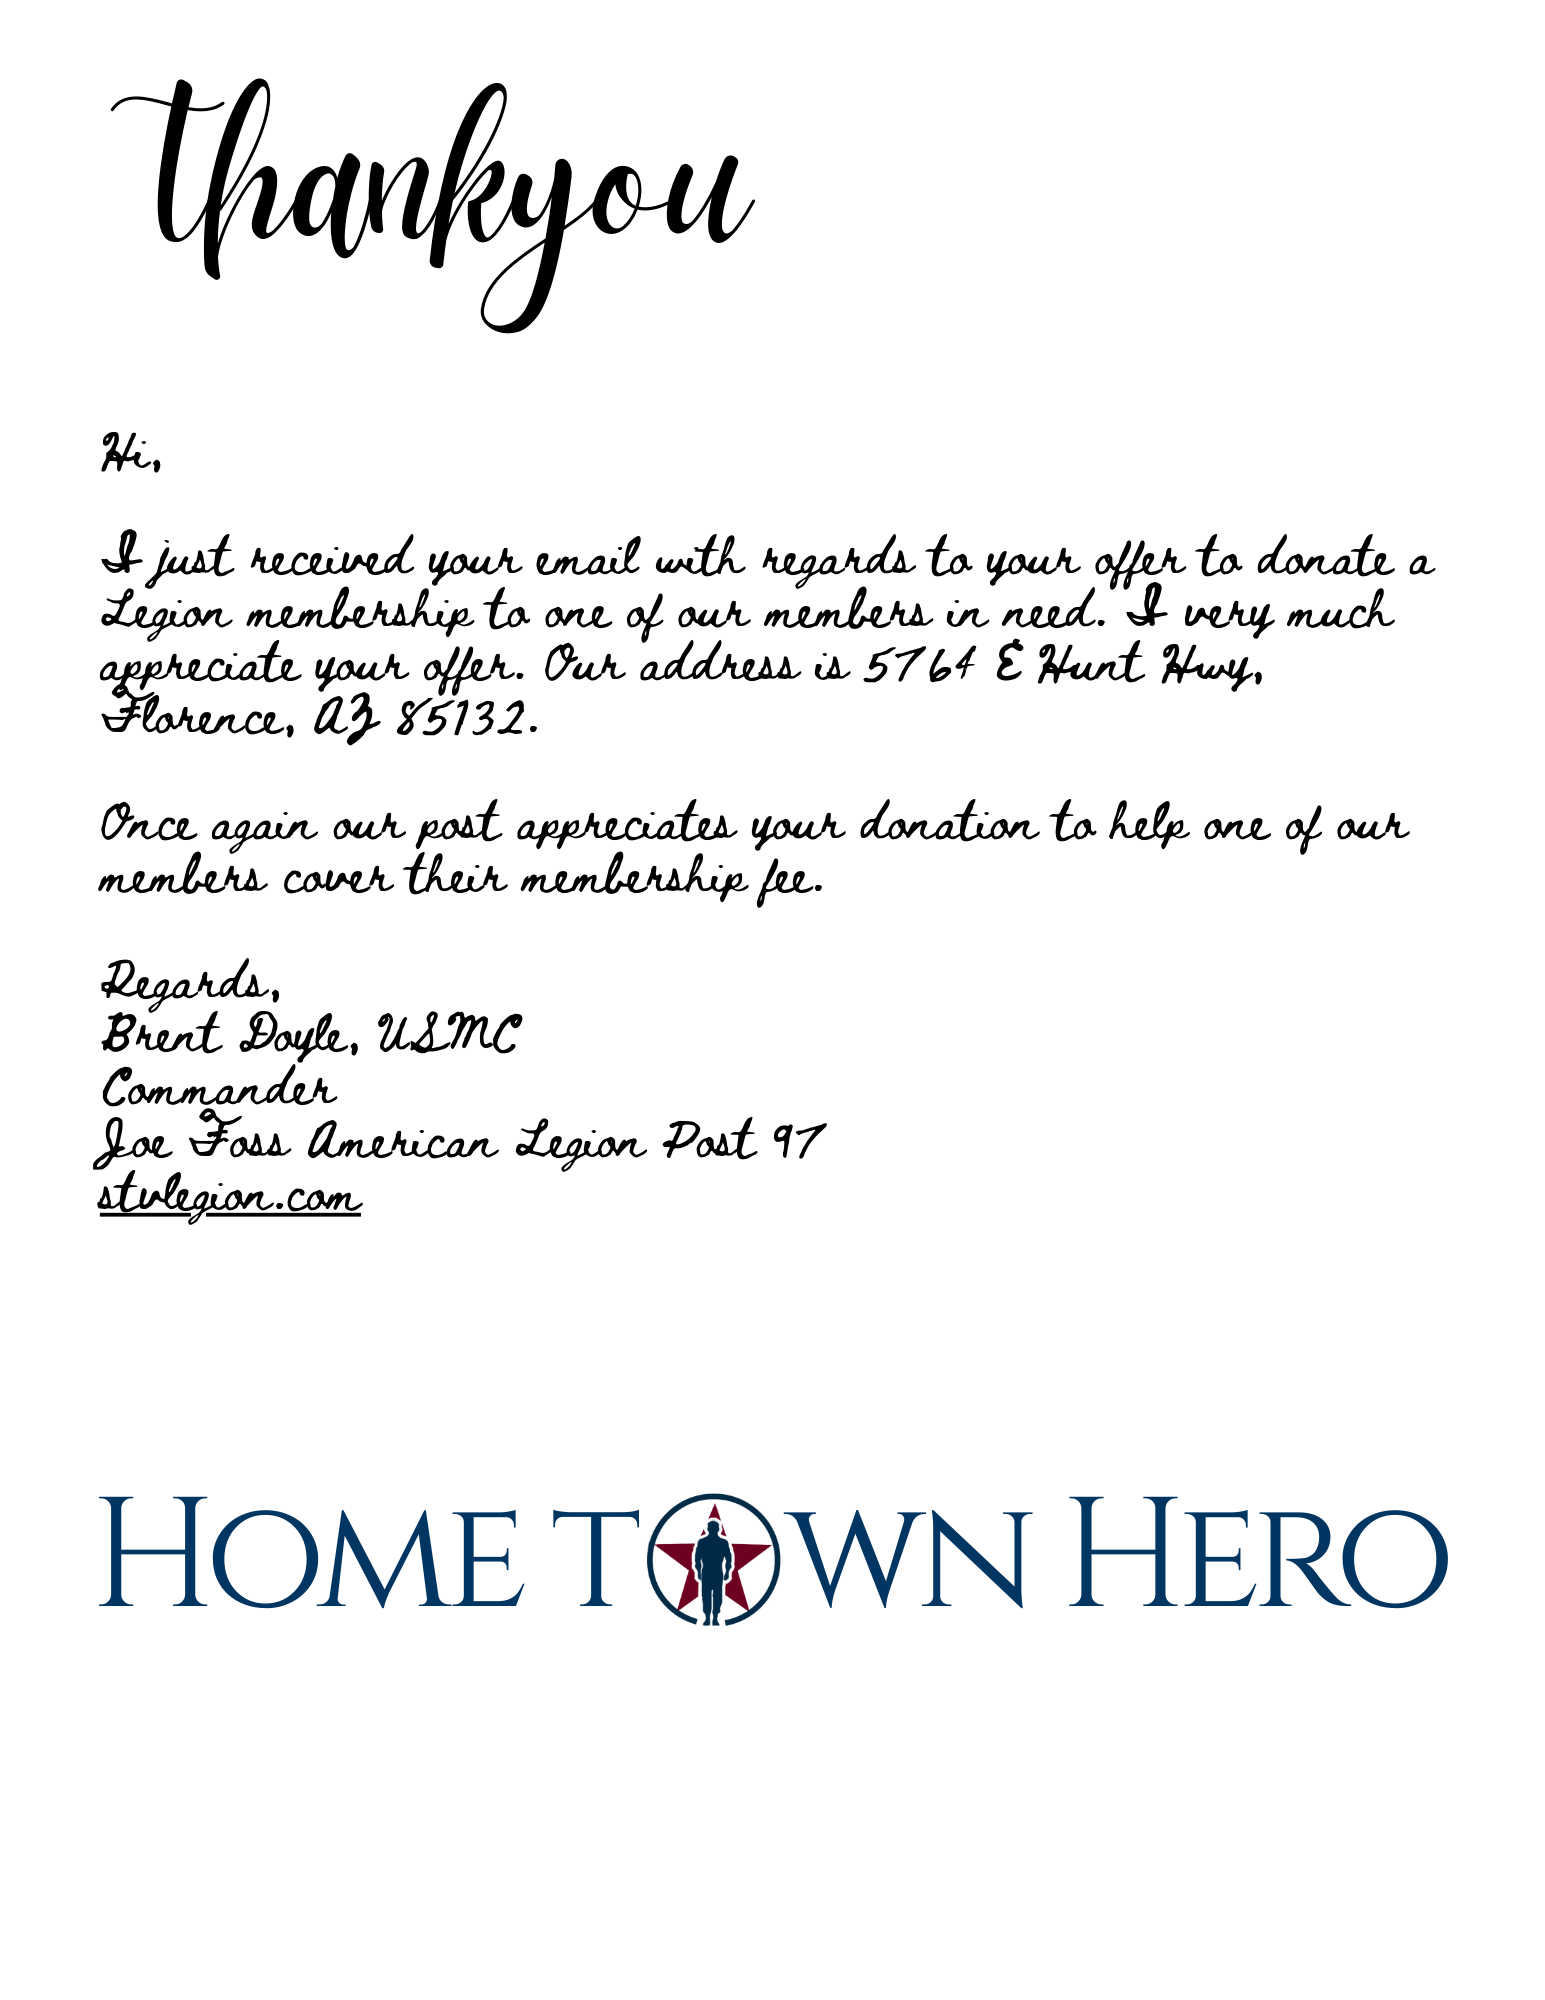 thankyou
Hi,
I just received your email with regards to your offer to donate a
Legion membership to one of our members in need. I very much
appreciate your offer. Our address is 5764 E Hunt Hwy,
Florence, AZ 85132.
Once again our post appreciates your donation to help one of our
members cover their membership fee.
Regards,
Brent Doyle, USMC
Commander
Joe Foss American Legion Post 97
stvlegion.com
HOME TOWN HERO